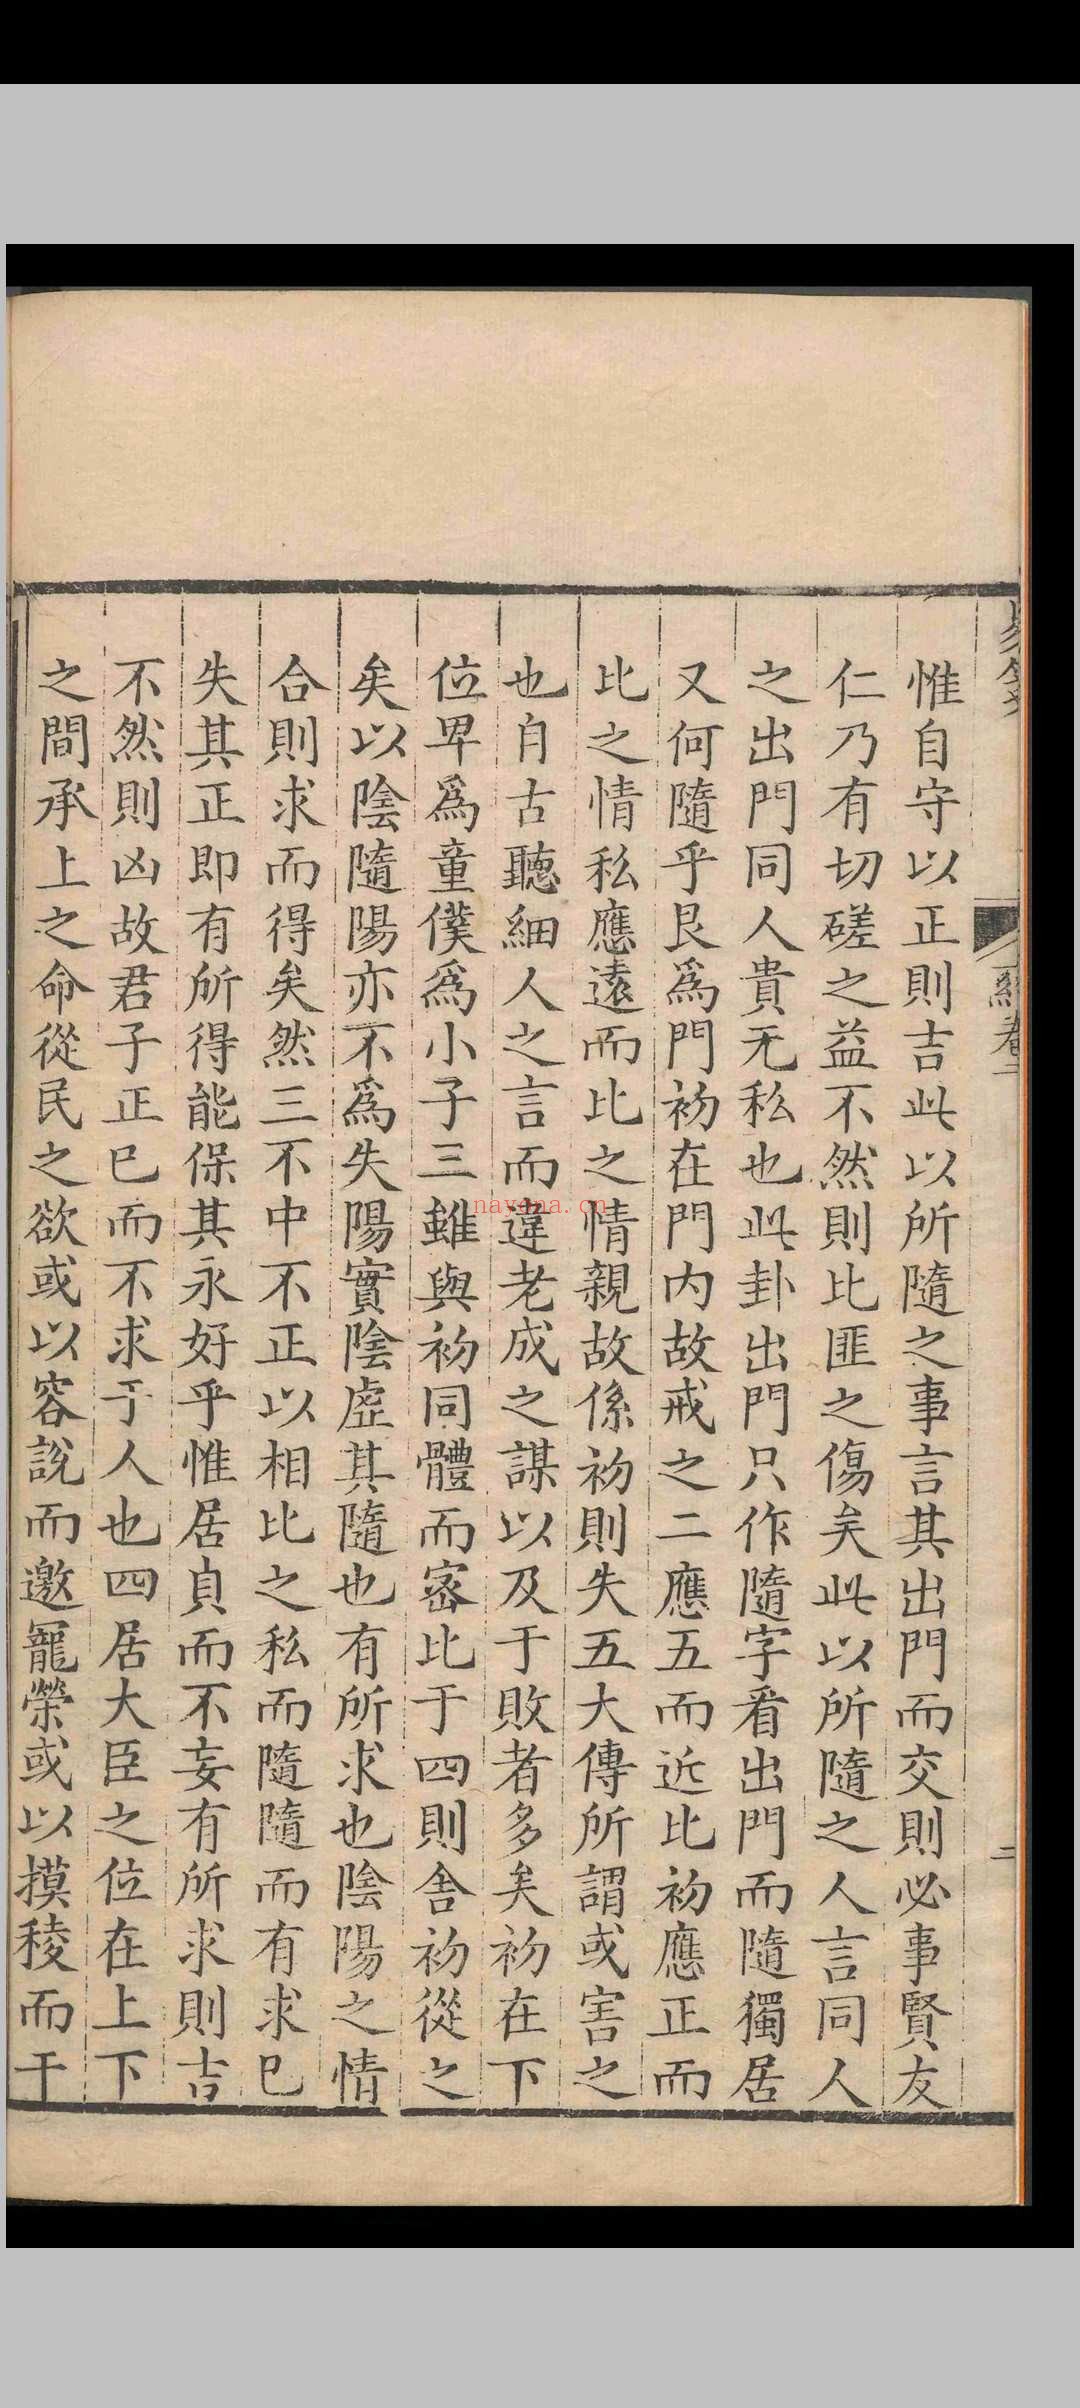 經卷二
二
惟自守以正則吉此以所隨之事言其出門而交則必事賢友
仁乃有切磋之益不然則比匪之傷矣此以所隨之人言同人
之出門同人貴无私也此卦出門只作隨字看出門而隨獨居
又何隨乎艮爲門初在門內故戒之二應五而近比初應正而
比之情私應遠而比之情親故係初則失五大傳所謂或害之
也自古聽細人之言而違老成之謀以及于敗者多矣初在下
位卑爲童僕爲小子三雖與初同體而密比于四則舍初從之
矣以陰隨陽亦不爲失陽實陰虛其隨也有所求也陰陽之情
合則求而得矣然三不中不正以相比之私而隨隨而有求已
失其正即有所得能保其永好乎惟居貞而不妄有所求則吉
不然則凶故君子正已而不求于人也四居大臣之位在上下
之間承上之命從民之欲或以容說而邀寵榮或以摸稜而干
nayona.cn